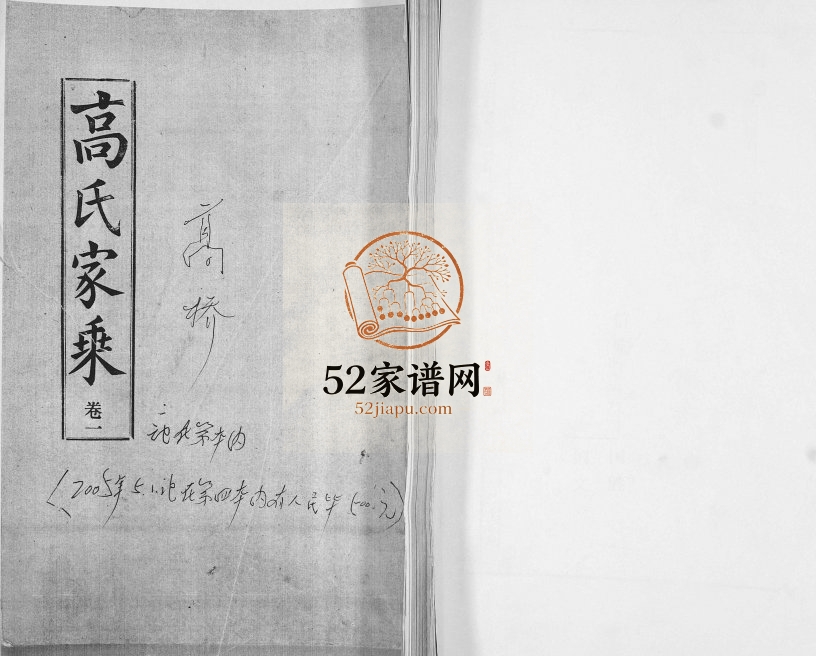 高氏家乘
卷一
高桥
记在第本内
(2005年5.1.记在第四本内有人民毕500元)
52家谱网
52jiapu.com